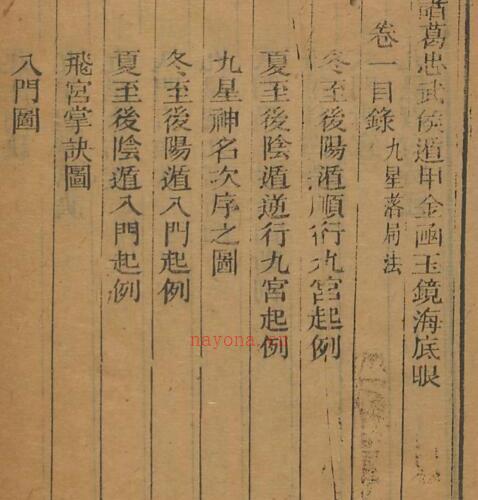 諸葛忠武侯遁甲金函玉鏡海底眼
卷一目錄 九星落局法
冬至後陽遁順行九宮起例
夏至後陰遁逆行九宮起例
九星神名次序之圖
冬至後陽遁八門起例
夏至後陰遁八門起例
飛宮掌訣圖
八門圖